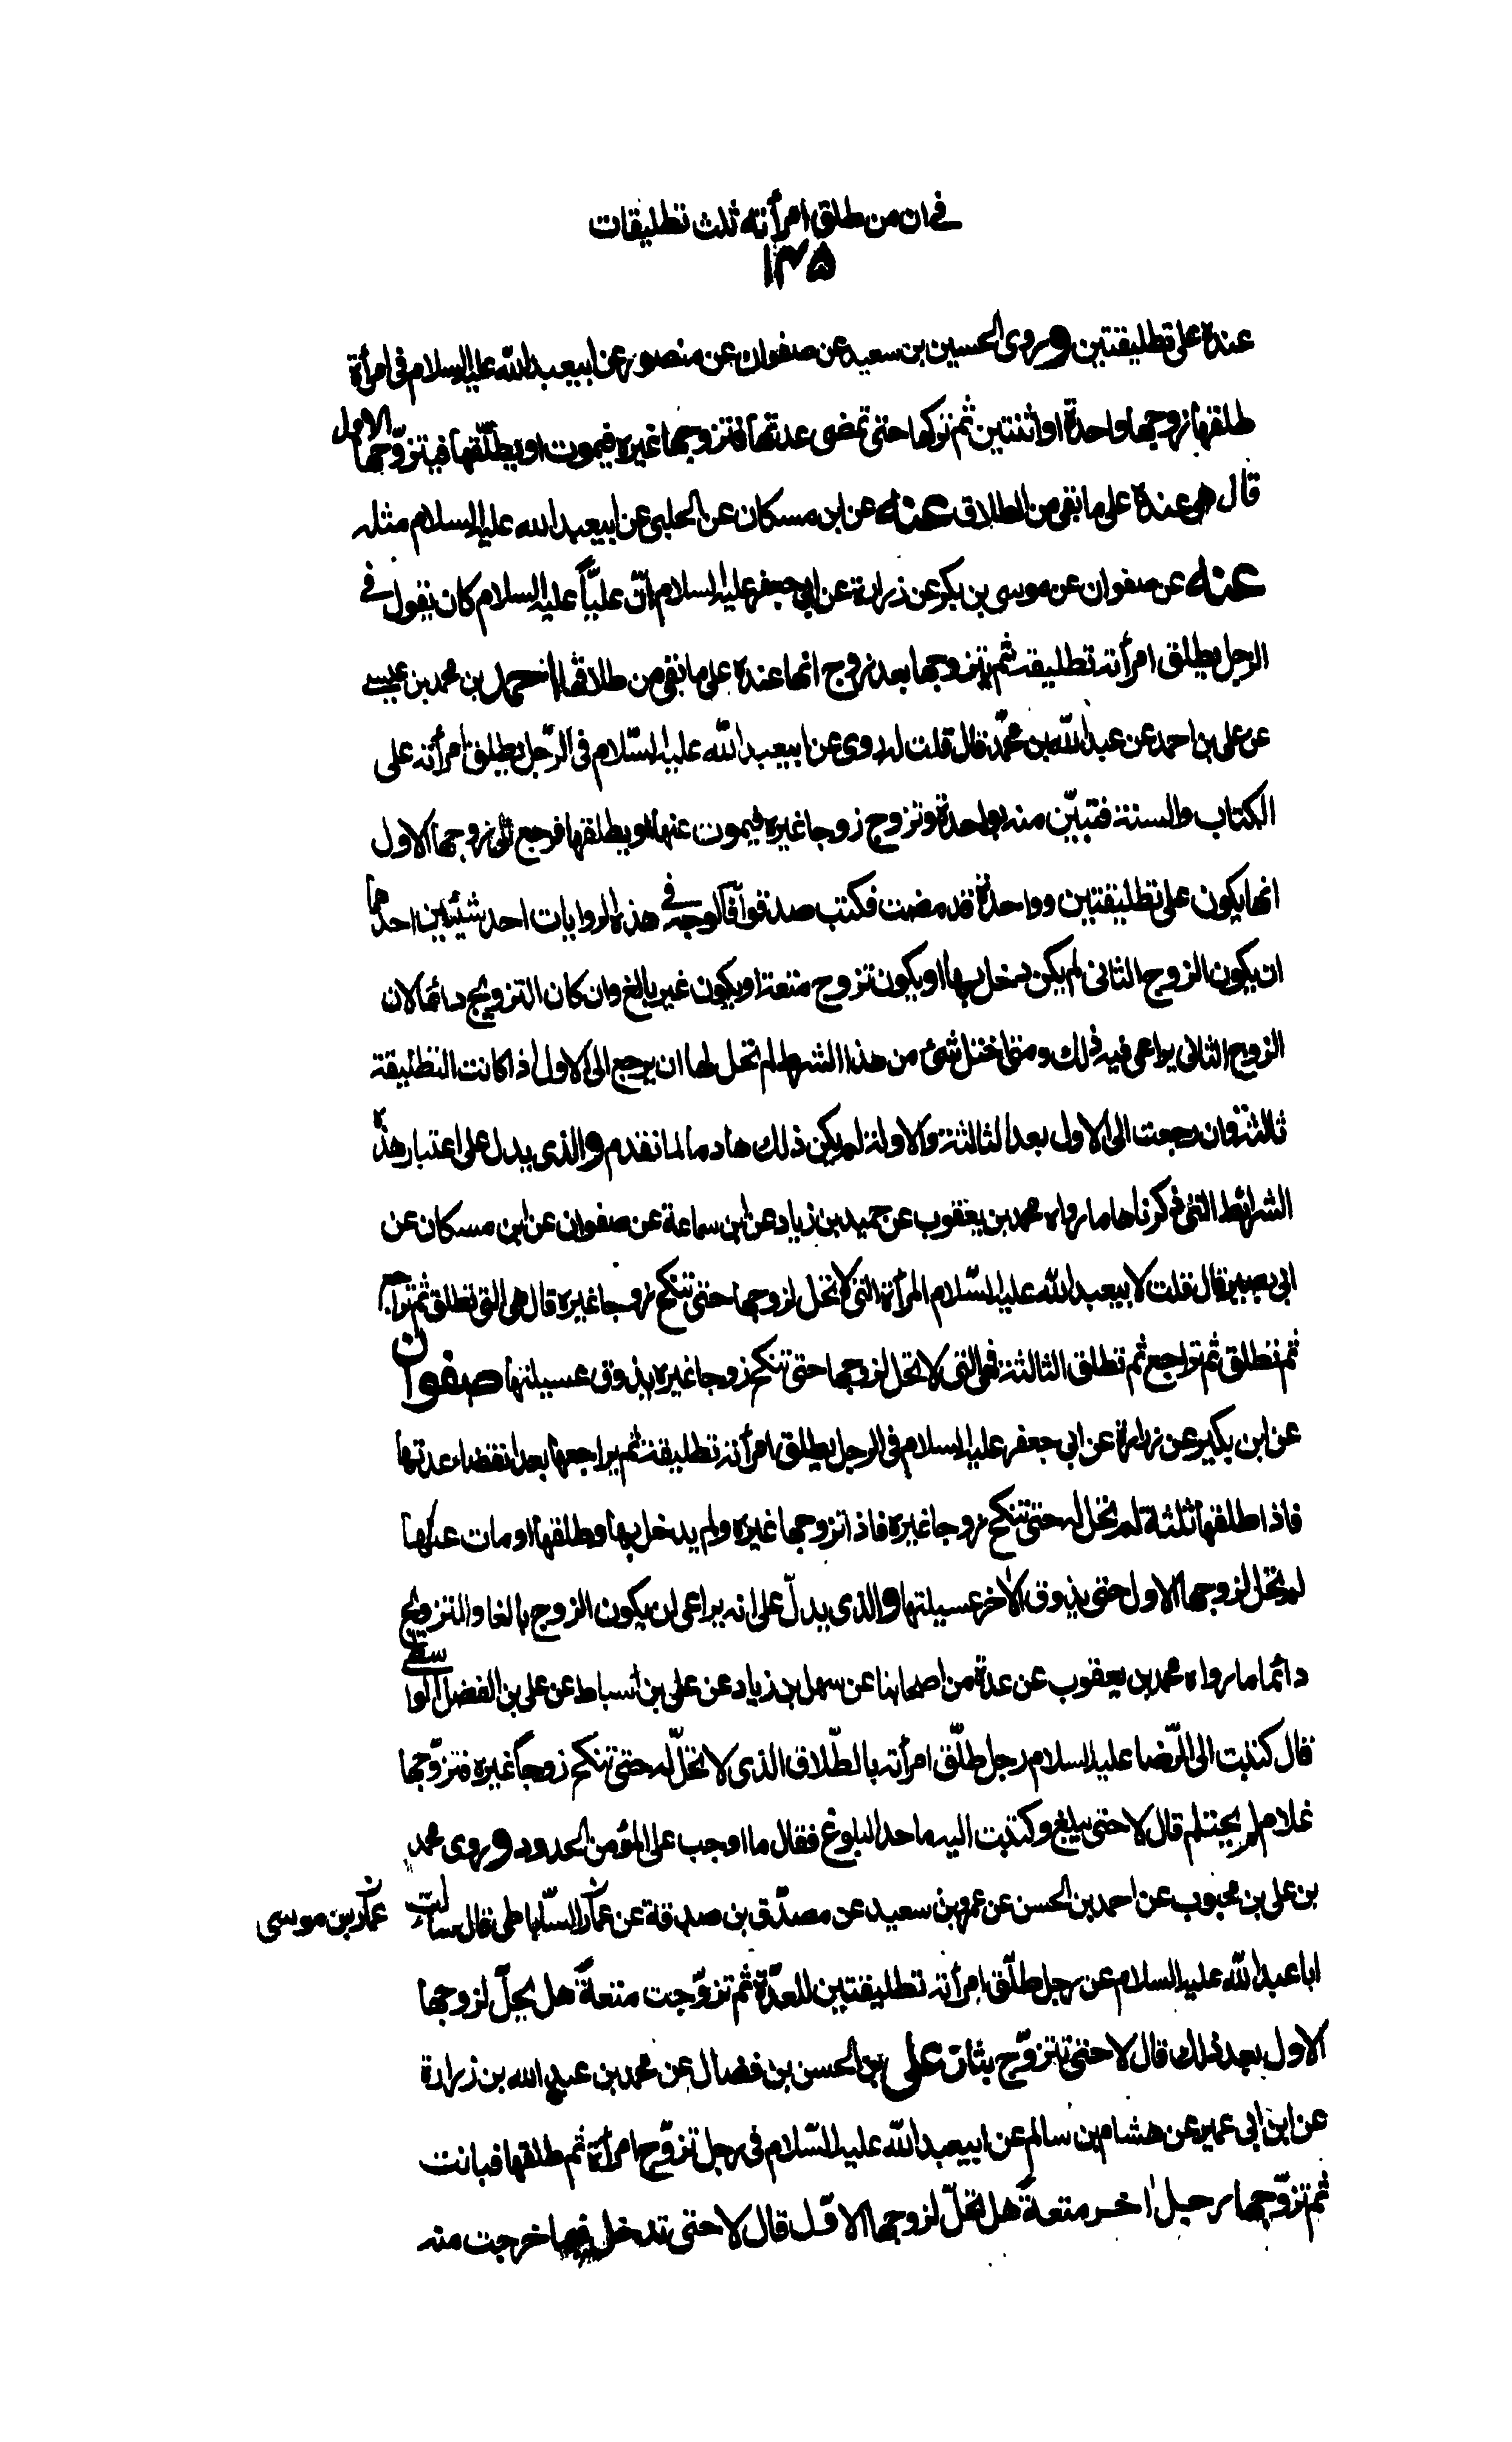 في ان من طلق امرأته ثلث تطليقات
١٣٥
عنده على تطليقتين وروى الحسين بن سعيد عن صفوان عن منصور عن ابيعبد الله عليه السلام في امرأة
طلقها زوجها واحدة او اثنتين ثم تركها حتى تمضى عدتها فتزوجها غيره فيموت او يطلّقها فيتزوّجها الاول
قال هي عنده على ما بقى من الطلاق عنه عن ابن مسكان عن الحلبى عن ابيعبد الله عليه السلام مثله
عنه عن صفوان عن موسى بن بكر عن زرارة عن ابى جعفر عليه السلام انّ عليّاً عليه السلام كان يقول في
الرجل يطلق امرأته تطليقة ثم يتزوجها بعد زوج انها عنده على ما بقى من طلاقها احمد بن محمد بن عيسى
عن على بن احمد عن عبد الله بن محمّد قال قلت له روى عن ابيعبد الله عليه السّلام فى الرّجل يطلق امرأته على
الكتاب والسنة فتبيّن منه بواحدة وتزوج زوجا غيره فيموت عنها او يطلقها فرجع الى زوجها الاول
انها يكون على تطليقتين وواحدة قد مضت فكتب صدقوا فالوجه في هذه الروايات احد شيئين احدهما
ان يكون الزوج الثانى لم يكن دخل بها او يكون تزوج متعة او يكون غير بالغ وان كان التزويج دائما لان
الزوج الثانى يراعى فيه ذلك ومتى اختل شئ من هذا الشرط لم تحل لها ان يرجع الى الاول اذا كانت التطليقة
ثالثة وان رجعت الى الاول بعد الثالثة والاولة لم يكن ذلك هادما لما تقدم والذى يدل على اعتبار هذه
الشرائط التى ذكرناها ما رواه محمد بن يعقوب عن حميد بن زياد عن ابن سماعة عن صفوان عن ابن مسكان عن
ابى بصير قال قلت لابيعبد الله عليه السّلام المرأة التى لا تحل لزوجها حتى تنكح زوجا غيره قال هى التى تطلق ثم تراجع
ثم تطلق ثم تراجع ثم تطلق الثالثة فهى التى لا تحل لزوجها حتى تنكح زوجا غيره يذوق عسيلتها صفوان
عن ابن بكير عن زرارة عن ابى جعفر عليه السلام فى الرجل يطلق امرأته تطليقة ثم يراجعها بعد انقضاء عدتها
فاذا طلقها ثلثة لم تحل له حتى تنكح زوجا غيره فاذا تزوجها غيره ولم يدخل بها وطلقها او مات عنها
لم تحل لزوجها الاول حتى يذوق الاخر عسيلتها والذى يدلّ على انه يراعى ان يكون الزوج بالغا والتزويج
دائما ما رواه محمد بن يعقوب عن عدة من اصحابنا عن سهل بن زياد عن على بن اسباط عن على بن الفضل الواسطي
قال كتبت الى الرّضا عليه السلام رجل طلّق امرأته بالطّلاق الذى لا تحلّ له حتى تنكح زوجاً غيره فتزوّجها
غلام لم يحتلم قال لا حتى يبلغ وكتبت اليه ما حد البلوغ فقال ما اوجب على المؤمن الحدود وروى محمد
بن على بن محبوب عن احمد بن الحسن عن عمرو بن سعيد عن مصدّق بن صدقة عن عمّار السّاباطى قال سألت
عمّار بن موسى
ابا عبد الله عليه السلام عن رجل طلّق امرأته تطليقتين للعدّة ثم تزوّجت متعةً هل يحلّ لزوجها
الاول بعد ذلك قال لا حتى تتزوّج بثات على بن الحسن بن فضال عن محمد بن عبد الله بن زرارة
عن ابن ابى عمير عن هشام بن سالم عن ابيعبد الله عليه السّلام فى رجل تزوّج امرأة ثم طلقها فبانت
ثم تزوّجها رجل اخر متعةً هل تحلّ لزوجها الاوّل قال لا حتى تدخل فيما خرجت منه